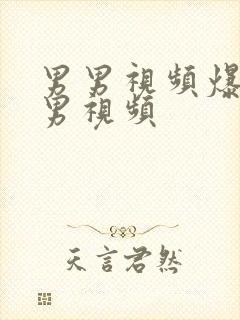 男男視頻爆
男視頻
天言君然